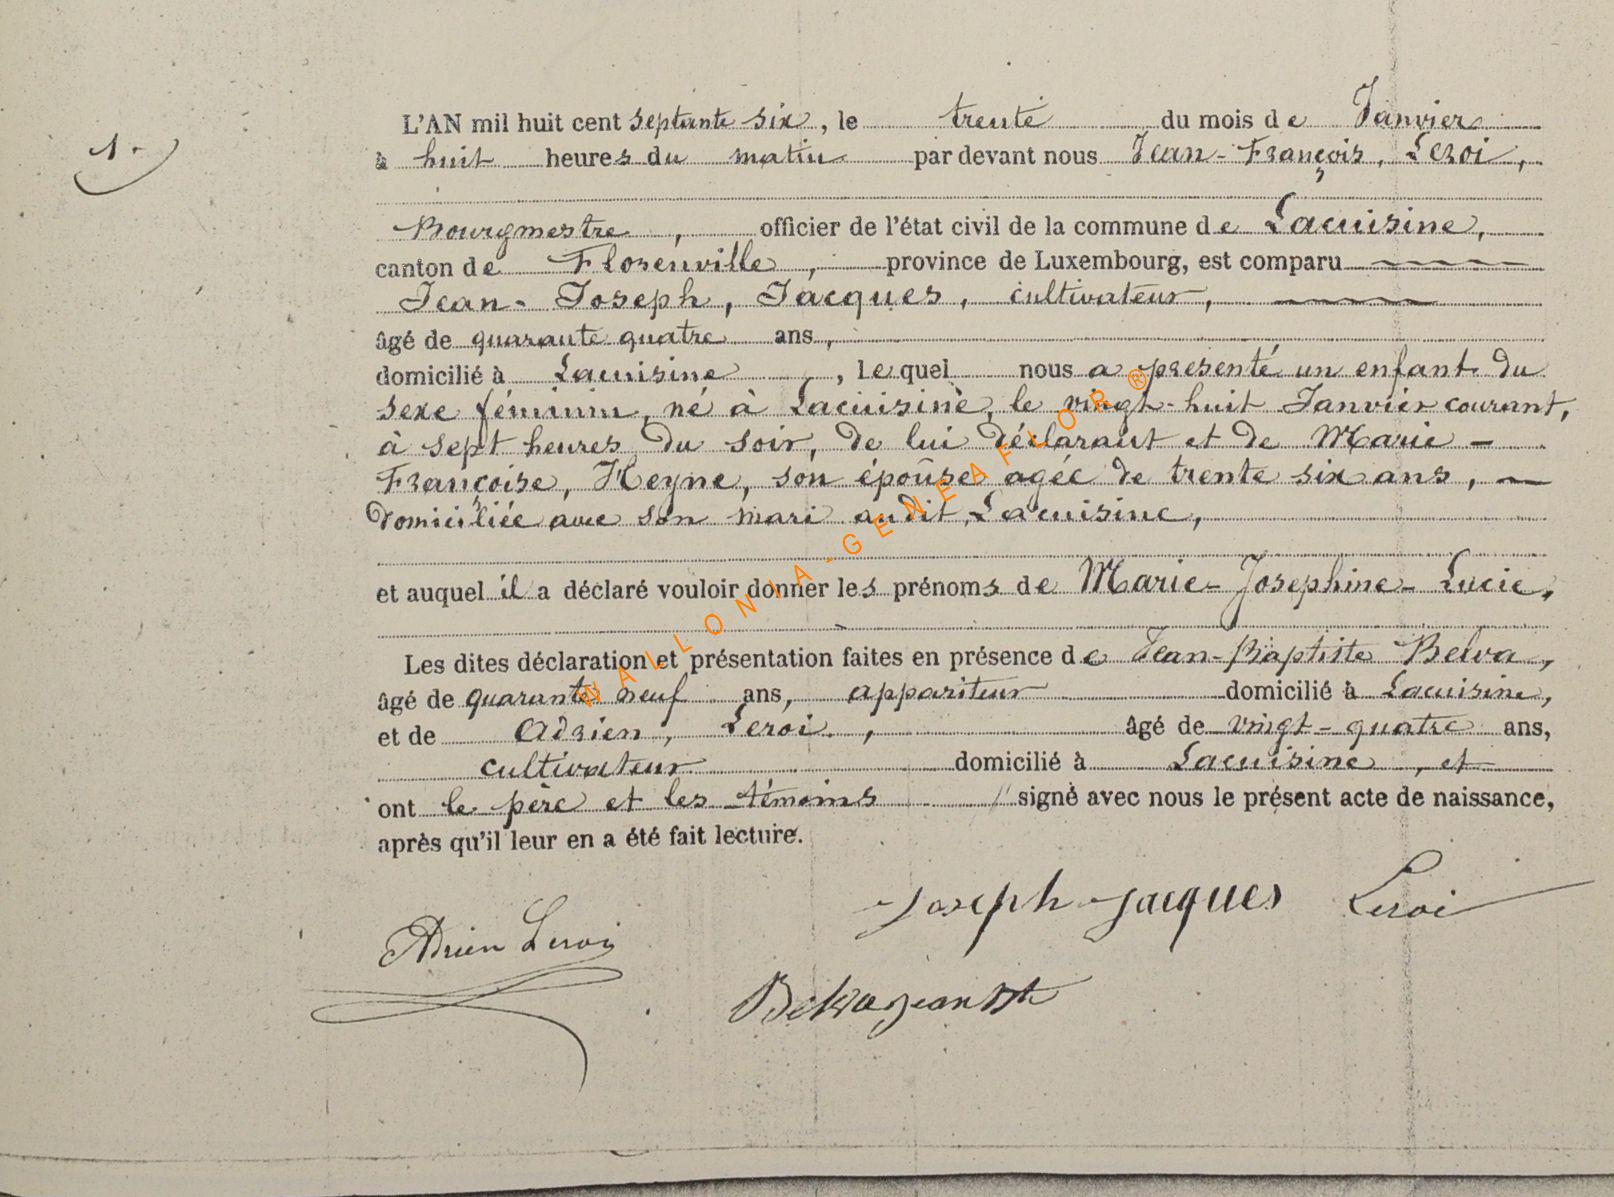 1.
L'AN mil huit cent septante six, le trente du mois de Janvier
à huit heures du matin par devant nous Jean-François, Leroi,
Bourgmestre, officier de l'état civil de la commune de Lacuisine,
canton de Florenville, province de Luxembourg, est comparu
Jean-Joseph, Jacques, cultivateur,
âgé de quarante quatre ans,
domicilié à Lacuisine, lequel nous a présenté un enfant du
sexe féminin, né à Lacuisine, le vingt-huit Janvier courant,
à sept heures du soir, de lui déclarant et de Marie-
Françoise, Heyne, son épouse agée de trente six ans,
domiciliée avec son mari audit Lacuisine,
et auquel il a déclaré vouloir donner les prénoms de Marie-Josephine-Lucie,
Les dites déclaration et présentation faites en présence de Jean-Baptiste Belva,
âgé de quarante neuf ans, appariteur domicilié à Lacuisine,
et de Adrien, Leroi, âgé de vingt-quatre ans,
cultivateur domicilié à Lacuisine, et
ont le père et les témoins signé avec nous le présent acte de naissance,
après qu'il leur en a été fait lecture.
Joseph Jacques Leroi
Adrien Leroi
Belva jean Bte
WALLONIA-GENEAFLOR ®